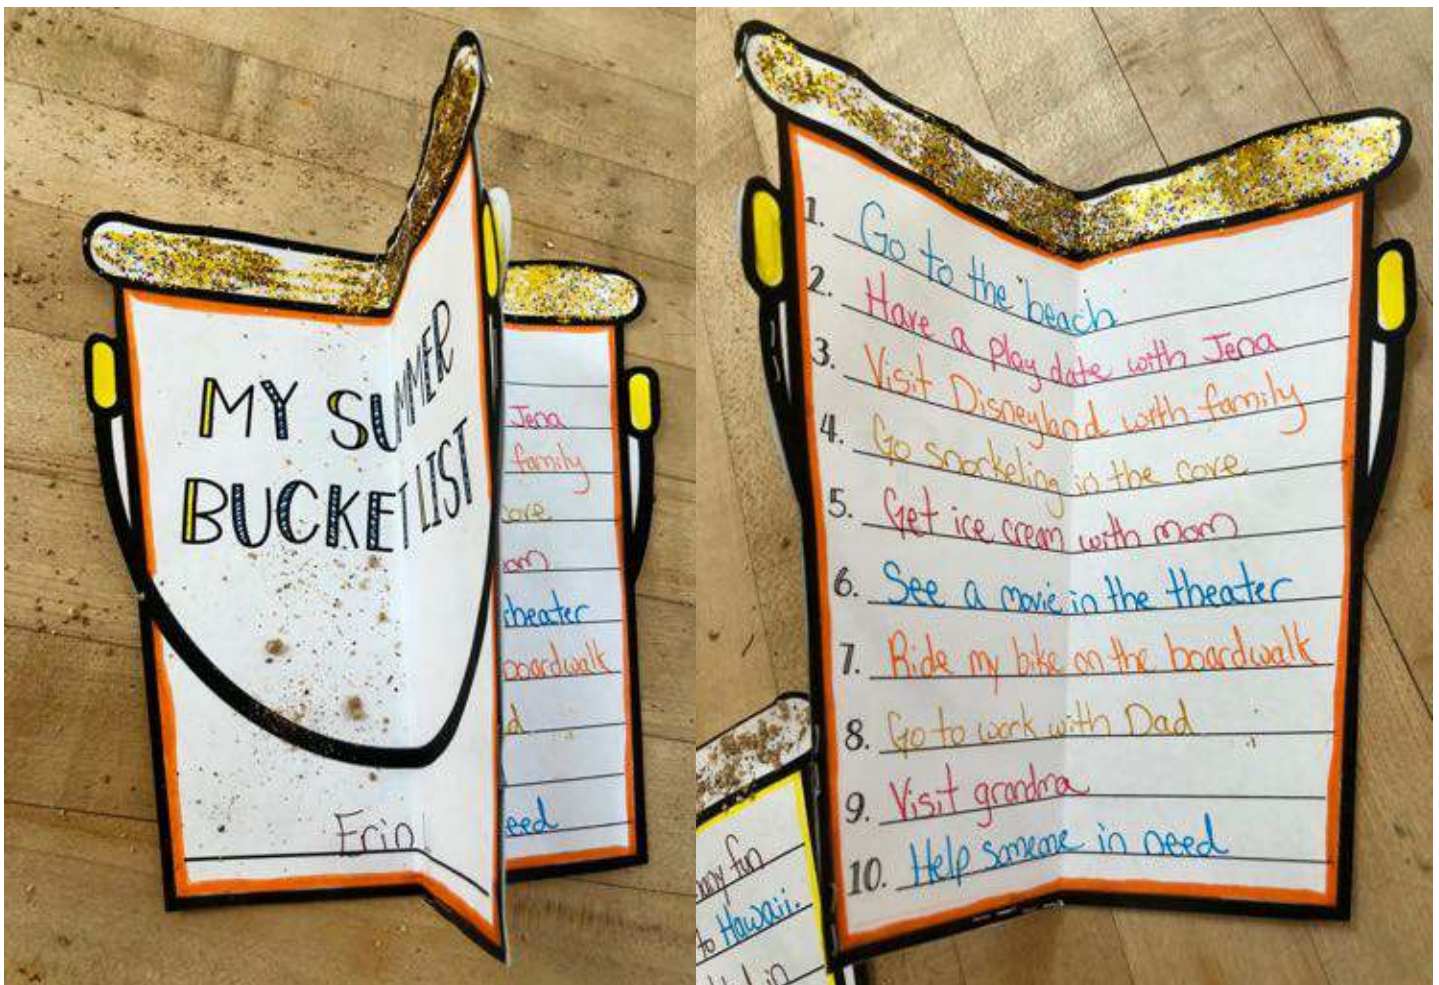 MY SUMMER
BUCKET LIST
Erin
Jena
family
ove
om
theater
boardwalk
d
eed
1. Go to the beach
2. Have a play date with Jena
3. Visit Disneyland with family
4. Go snorkeling in the cove
5. Get ice cream with mom
6. See a movie in the theater
7. Ride my bike on the boardwalk
8. Go to work with Dad
9. Visit grandma
10. Help someone in need
fun
to Hawaii.
in